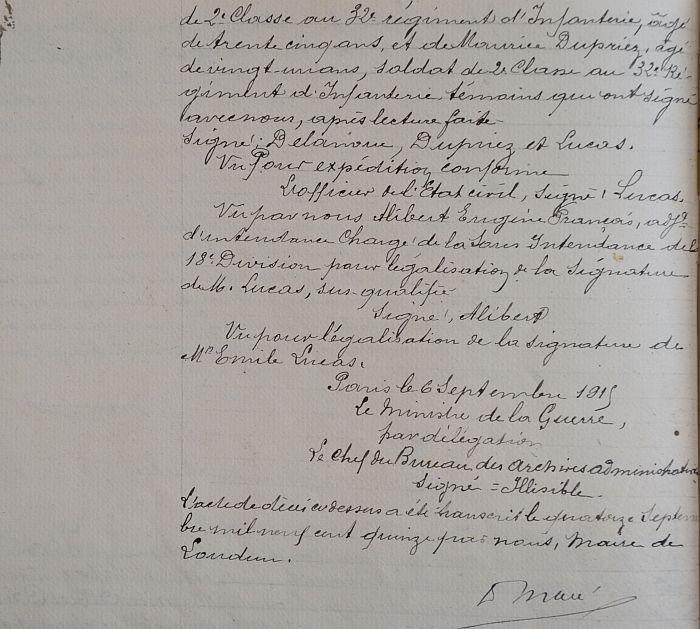 de 2e Classe au 32e régiment d'Infanterie, âgé
de trente cinq ans, et de Maurice Dupriez, âgé
de vingt-un ans, soldat de 2e Classe au 32e Ré-
giment d'Infanterie témoins qui ont signé
avec nous, après lecture faite
Signé: Delanoue, Dupriez et Lucas.
Vu Pour expédition conforme
L'officier de l'Etat civil, Signé: Lucas.
Vu par nous Alibert Eugène François, adjt
d'intendance Chargé de la Sous Intendance de la
18e Division pour légalisation de la Signature
de M. Lucas, sus-qualifié
Signé: Alibert
Vu pour légalisation de la signature de
Mr Emile Lucas.
Paris le 6 Septembre 1915
Le Ministre de la Guerre,
par délégation
Le Chef du Bureau des Archives administratives
Signé = Illisible.
L'acte de décès ci dessus a été transcrit le quatorze Septem
bre mil neuf cent quinze par nous, Maire de
Loudun.